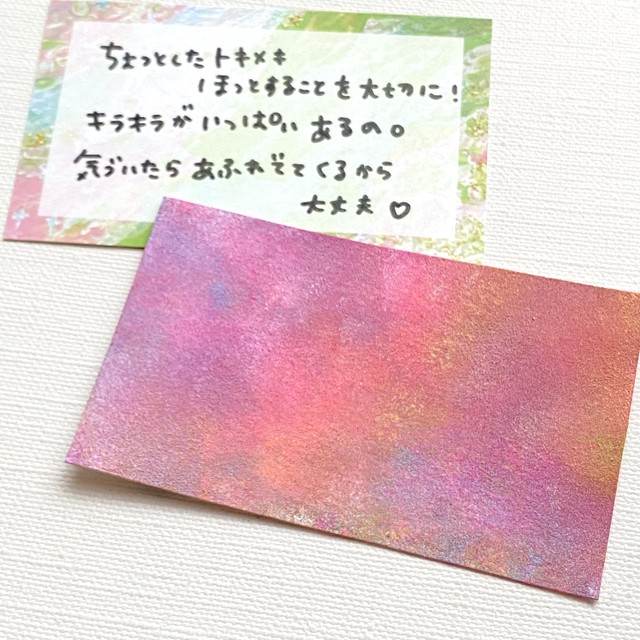 ちょっとしたトキメキ
ほっとすることを大切に!
キラキラがいっぱい あるの。
気づいたら あふれでてくるから
大丈夫♡